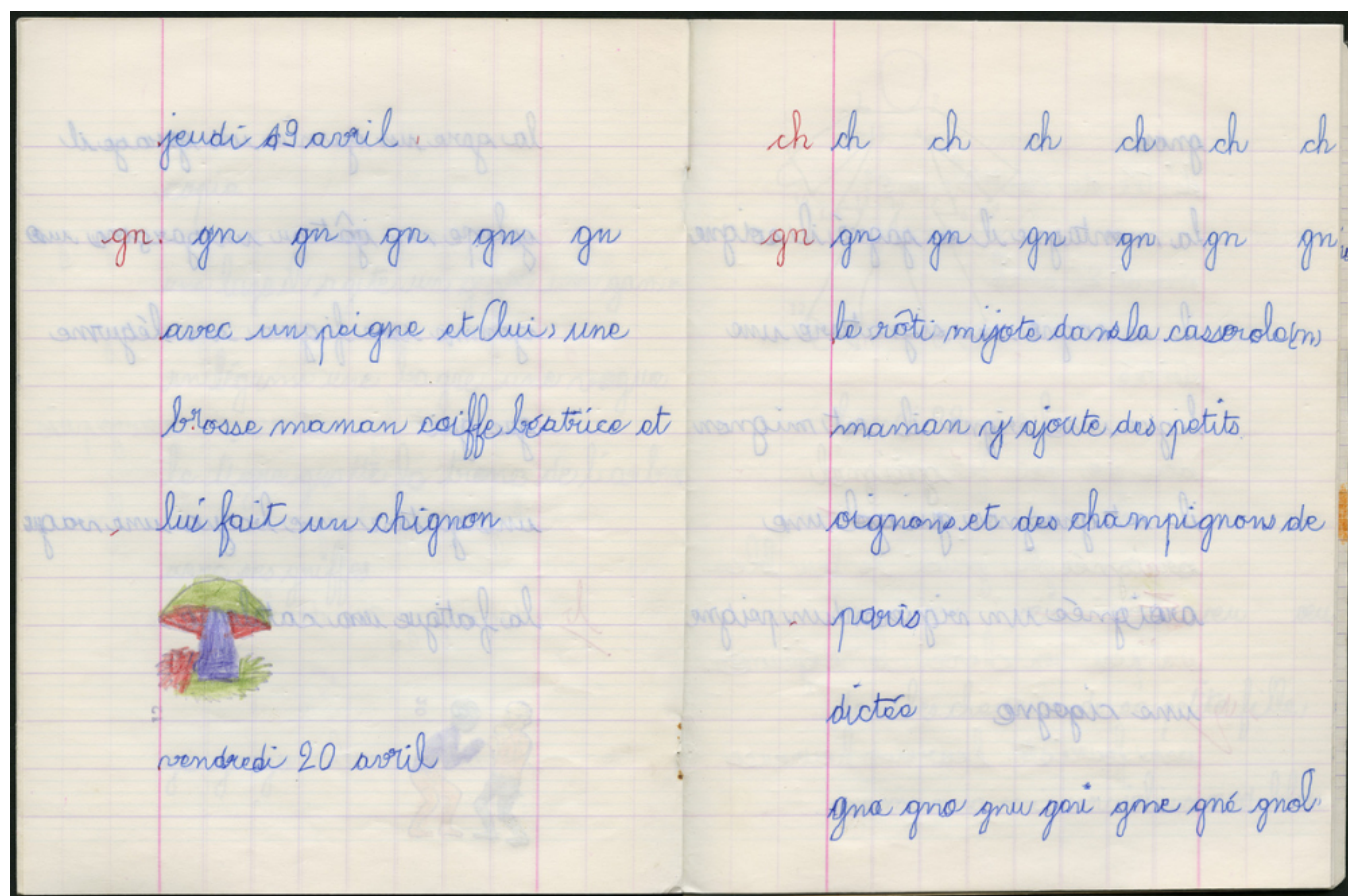 jeudi 19 avril.
gn. gn gn gn gn gn
avec un peigne et (lui) une
brosse maman coiffe béatrice et
lui fait un chignon
vendredi 20 avril
ch ch ch ch ch ch ch
gn gn gn gn gn gn gn
le rôti mijote dans la casserole (n)
maman y ajoute des petits
oignons et des champignons de
paris
dictée
gna gno gnu gni gne gné gnol